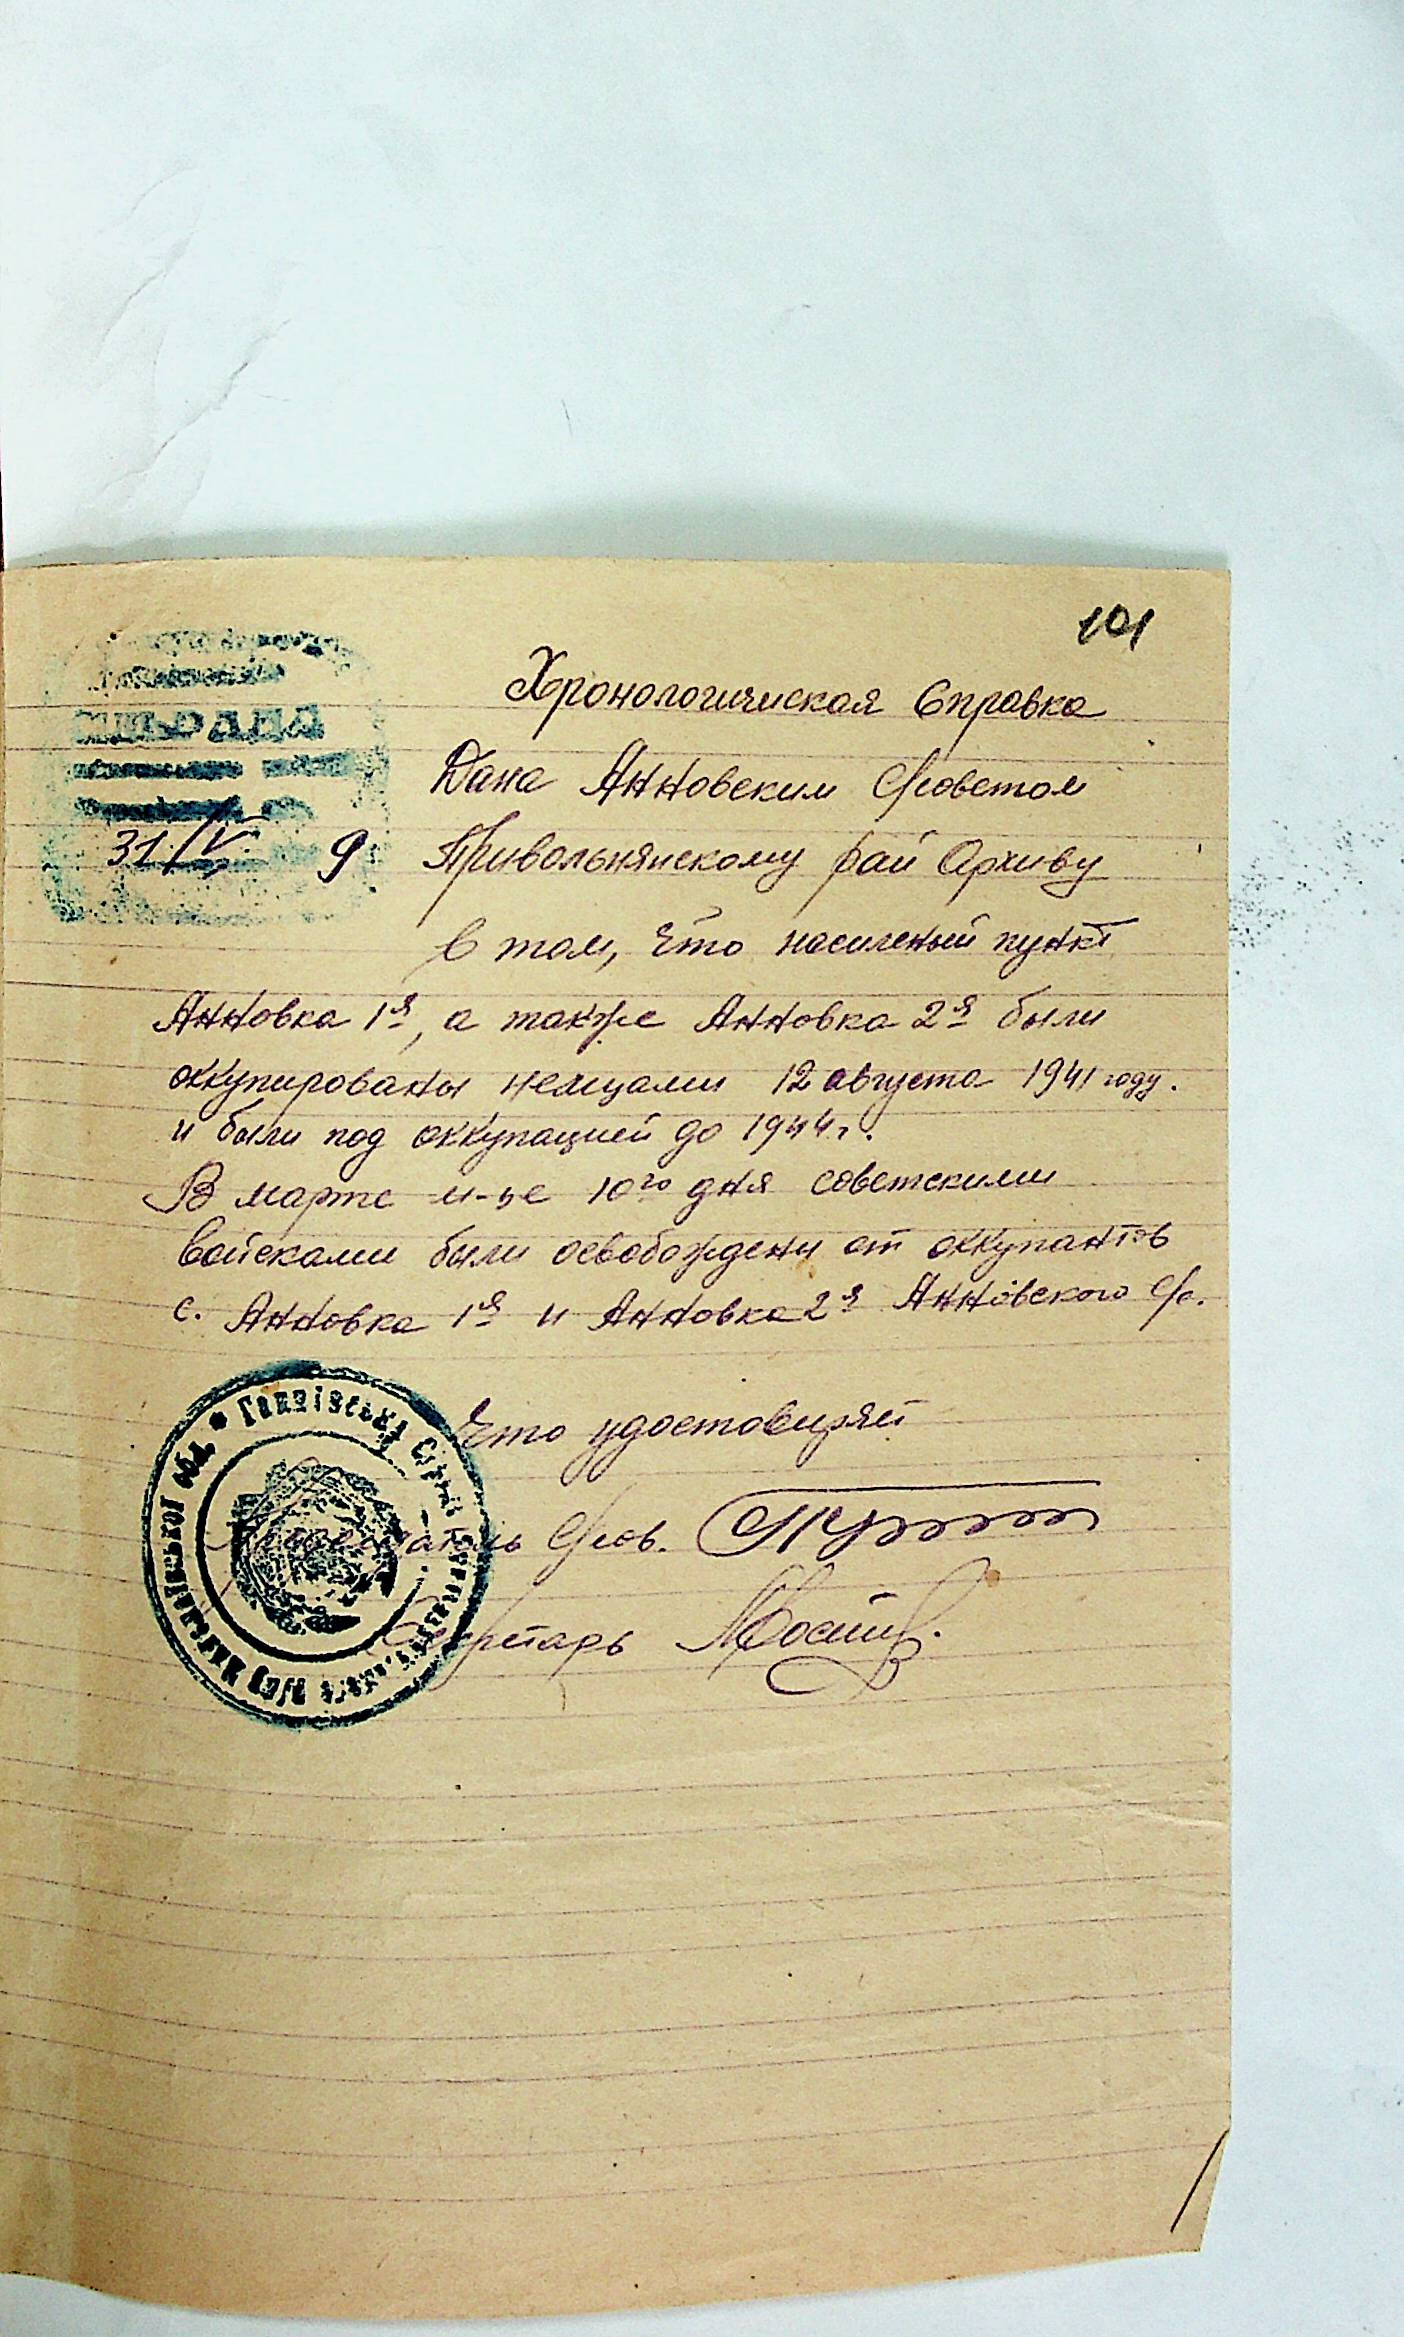 101
Хронологичиская Справка
Дана Анновским с/советом
31/V 9 Привольнянскому рай Архиву
в том, что насиленый пункт
Анновка 1я, а также Анновка 2я были
оккупированы немцами 12 августа 1941 году.
и были под оккупацией до 1944 г.
В марте м-це 10го дня советскими
войсками были освобождены от оккупантов
с. Анновка 1я и Анновка 2я Анновского с/с.
Что удостовиряет
Председатель с/сов.
Секретарь